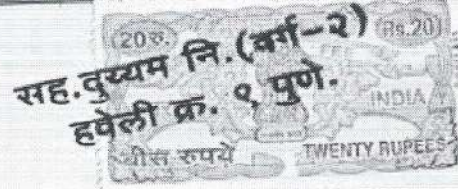 (20रु.
(Rs.20)
सह.दुय्यम नि.(वर्ग-२)
हवेली क्र. ९, पुणे.
INDIA
बीस रुपये
TWENTY RUPEES